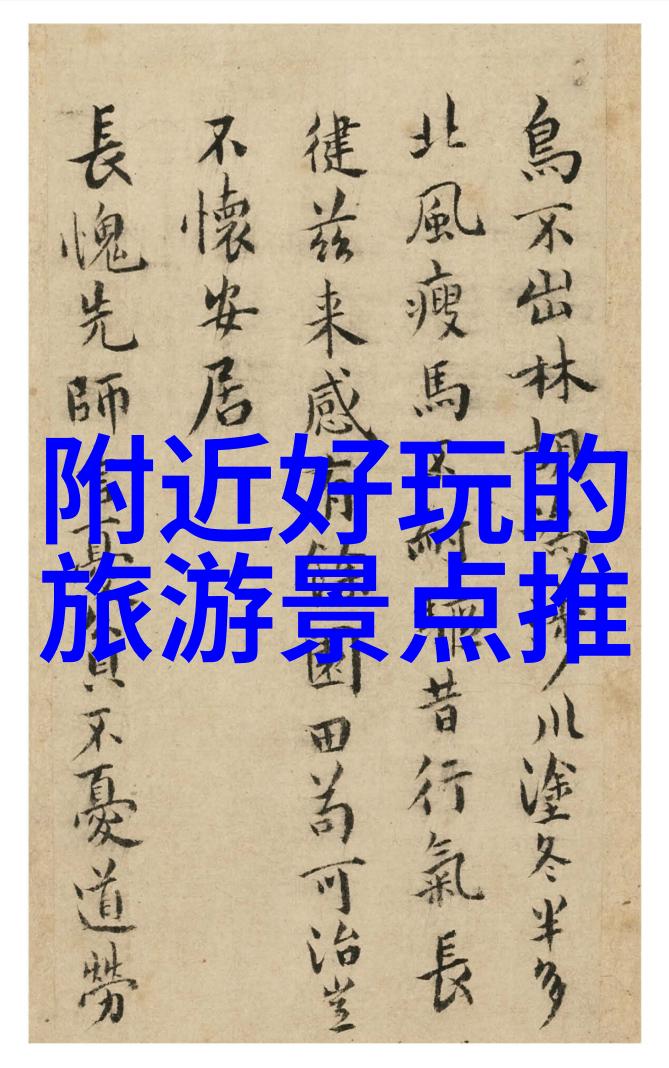 鳥不出林胡為川塗冬半多
北風瘦馬不耐昔行氣長
徤茲来感有園田苟可治豈
不懷安居
長愧先師貧不憂道勞
附近好玩的
旅游景点推